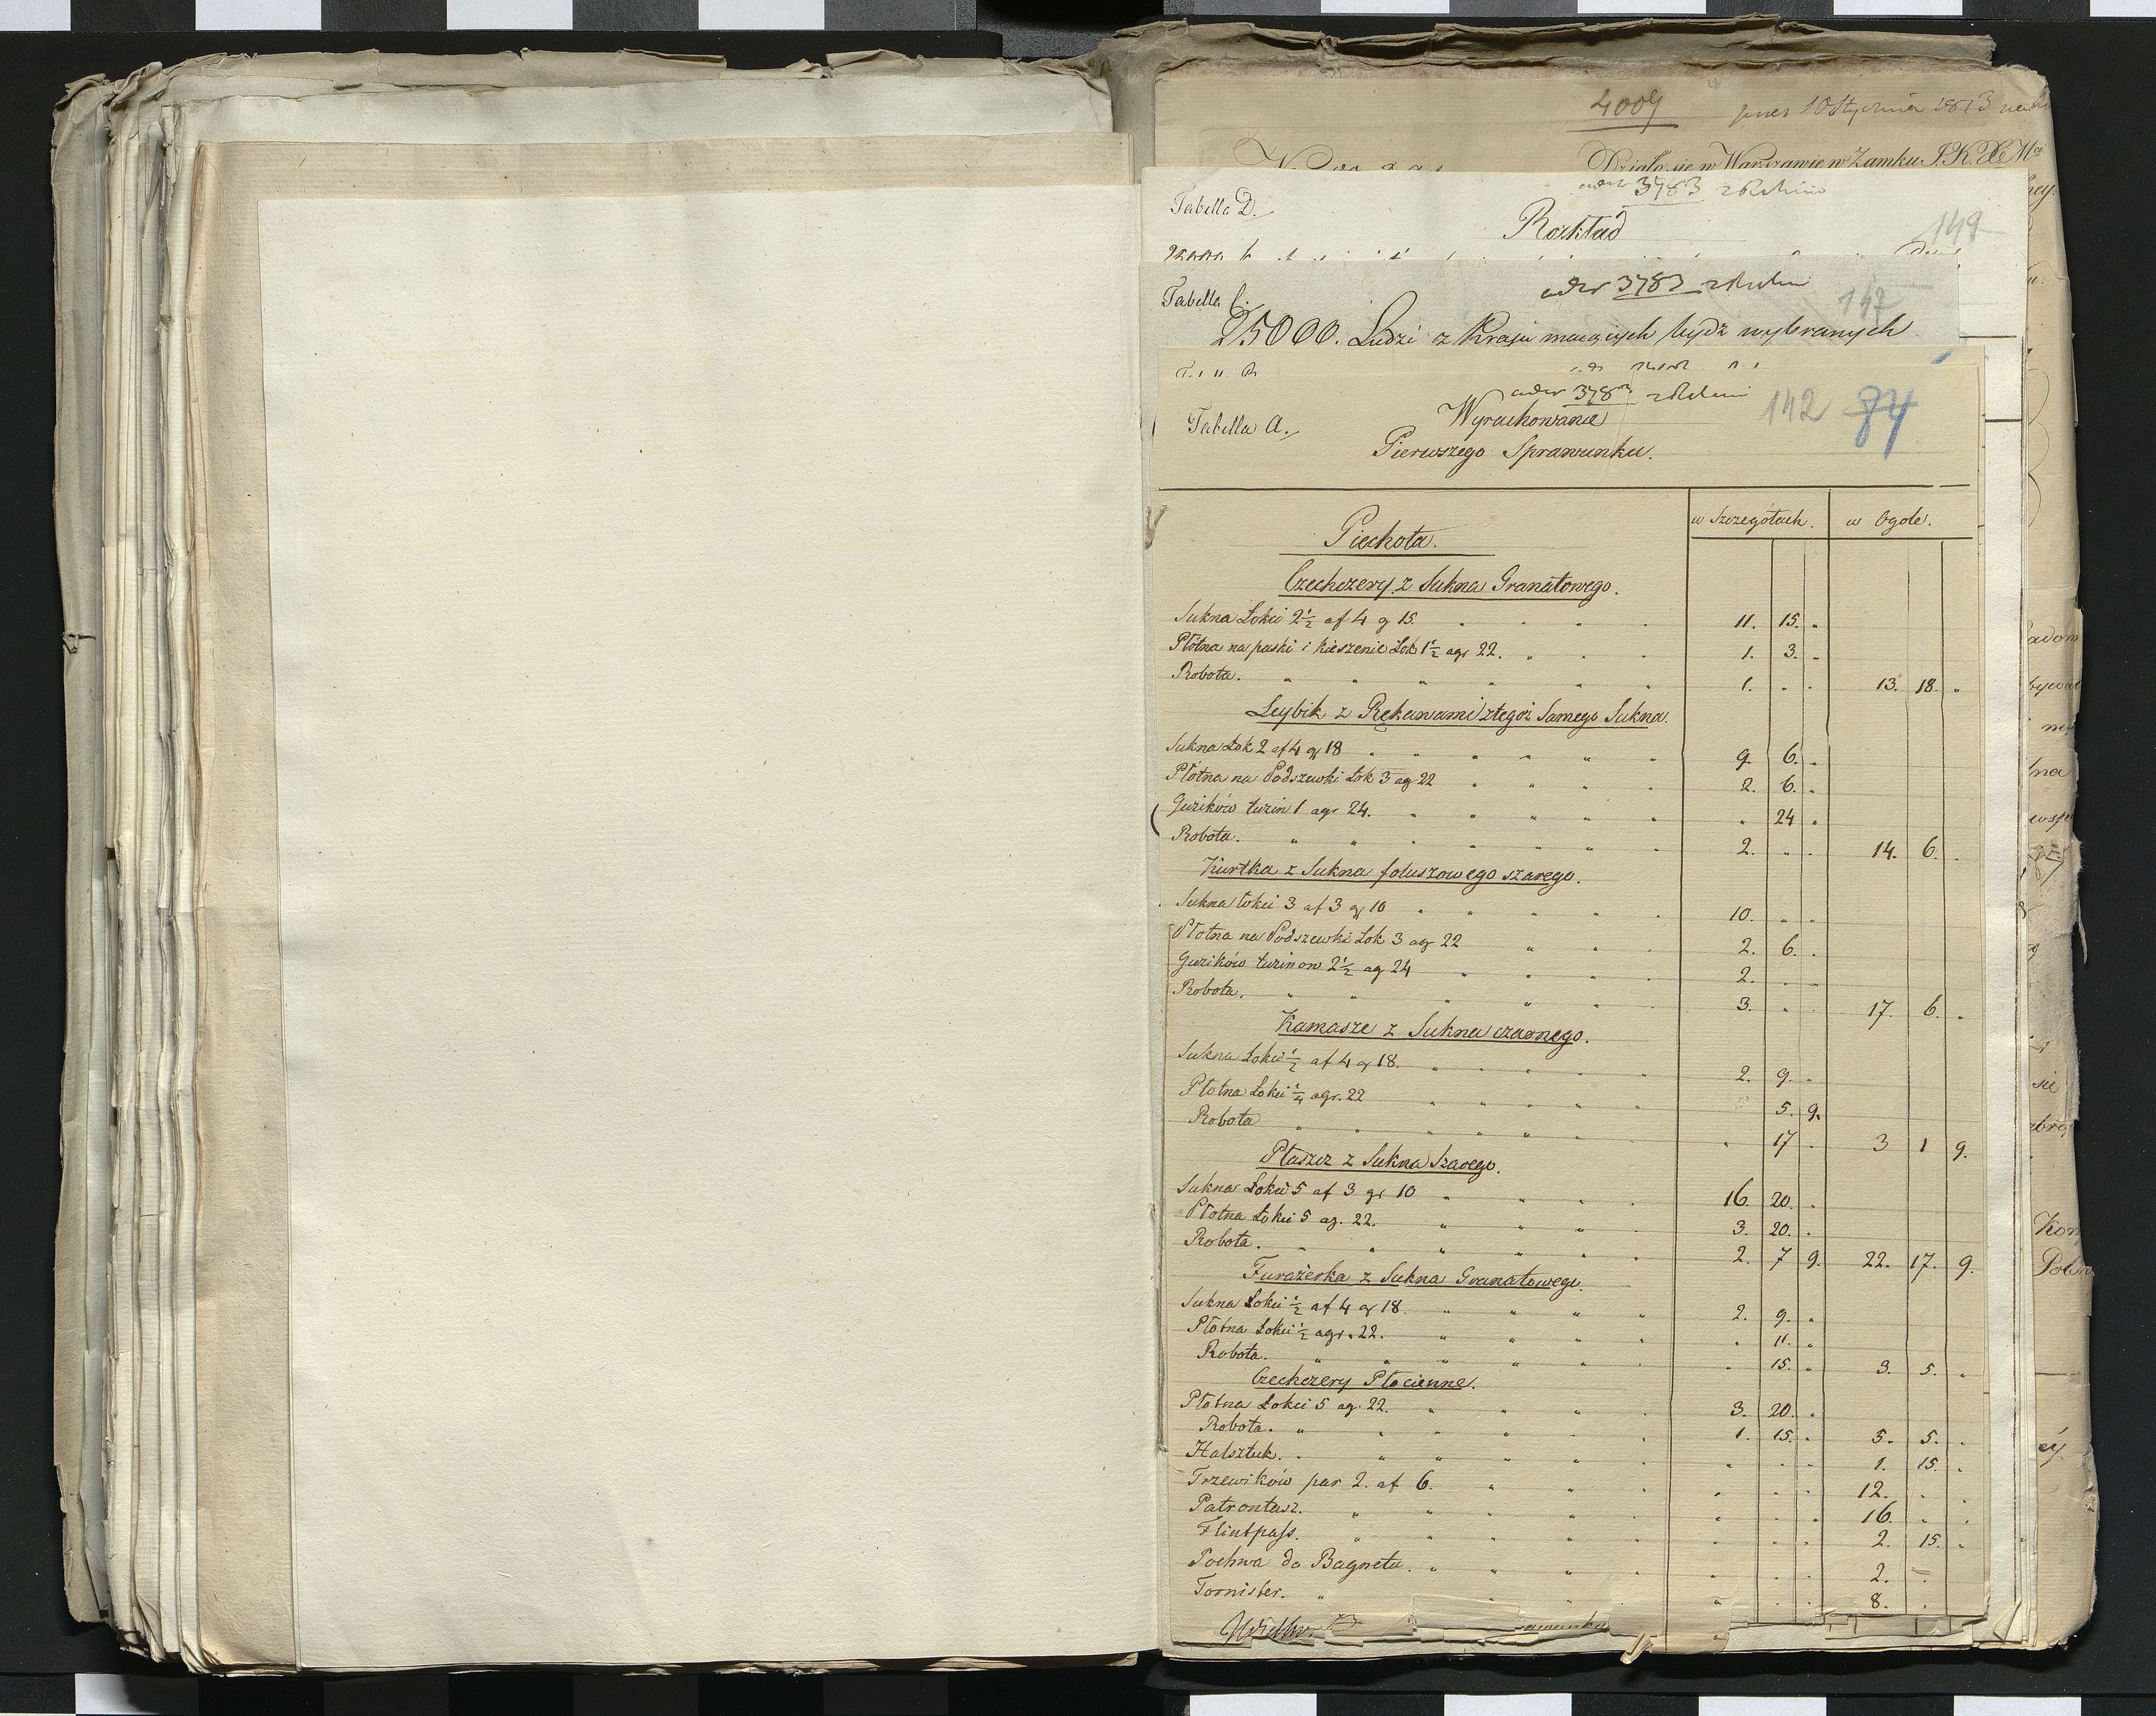 4009
10 Stycznia 1813
Działo się w Warszawie w Zamku J. K. X. Mci
3783
Tabella D.
Rozkład
149
3783
Tabella C.
147
25000. Ludzi z Kraju maiących bydź wybranych
3783
142 84
Tabella A.
Wyrachowanie
Pierwszego Sprawunku.
w Szczegółach. w Ogóle.
Piechota.
Czechczery z Sukna Granatowego.
Sukna Łokci 2 1/2 af 4 g 15. 11. 15. "
Płótna na paski i kieszenie Łok 1 1/2 agr 22. 1. 3. "
Robota. 1. " " 13. 18. "
Leybik z Rękawami z tegoż Samego Sukna.
Sukna Łok 2 af 4 gr 18 9. 6. "
Płótna na Podszewki Łok 3 ag 22 2. 6. "
Guzików tuzin 1 agr 24. " 24 "
Robota. 2. " " 14. 6. "
Kurtka z Sukna foluszowego szarego.
Sukna łokci 3 af 3 gr 10 10. " "
Płótna na Podszewki Łok 3 agr 22 2. 6. "
Guzików tuzinow 2 1/2 ag 24 2. " "
Robota. 3. " " 17. 6. "
Kamasze z Sukna czarnego.
Sukna Łokci 1/2 af 4 gr 18. 2. 9. "
Płótna Łokci 1/4 agr. 22 5. 9.
Robota " 17 " 3 1 9.
Płaszcz z Sukna Szarego.
Sukna Łokci 5 af 3 gr 10 16. 20. "
Płótna Łokci 5 ag. 22. 3. 20. "
Robota. 2. 7 9. 22. 17. 9.
Furażerka z Sukna Granatowego.
Sukna Łokci 1/2 af 4 gr 18. 2. 9. "
Płótna Łokci 1/2 agr. 22. " 11. "
Robota. " 15. " 3. 5. "
Czechczery Płocienne.
Płótna Łokci 5 ag. 22. 3. 20. "
Robota. 1. 15. " 5. 5. "
Halsztuk. 1. 15. "
Trzewików par 2. af 6. 12. " "
Patrontasz. 16. " "
Flintpass. 2. 15. "
Pochwa do Bagnetu. 2. "
Tornister. 8. "